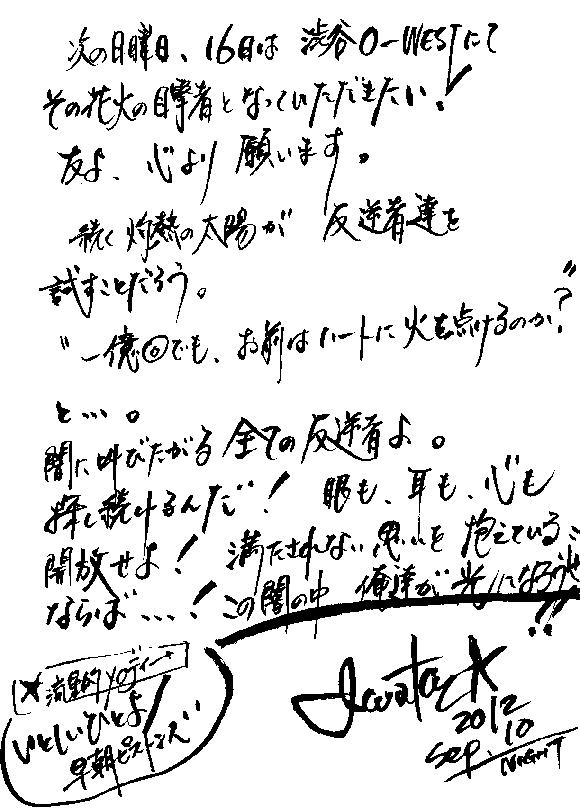 次の日曜日、16日は 渋谷O-WESTにて
その花火の目撃者となっていただきたい!
友よ、心より 願います。
続く 灼熱の太陽が 反逆者達を
試すことだろう。
"一億回でも、お前はハートに火を点けるのか?"
と…。
闇に叫びたがる 全ての反逆者よ。
探し続けるんだ! 眼も、耳も、心も
開放せよ! 満たされない思いを 抱えている
ならば…! この闇の中 俺達が 光になろうぜ!!
流星的メロディー
いとしいひとよ
早朝ピストンズ
2012
Sep. 10
NIGHT